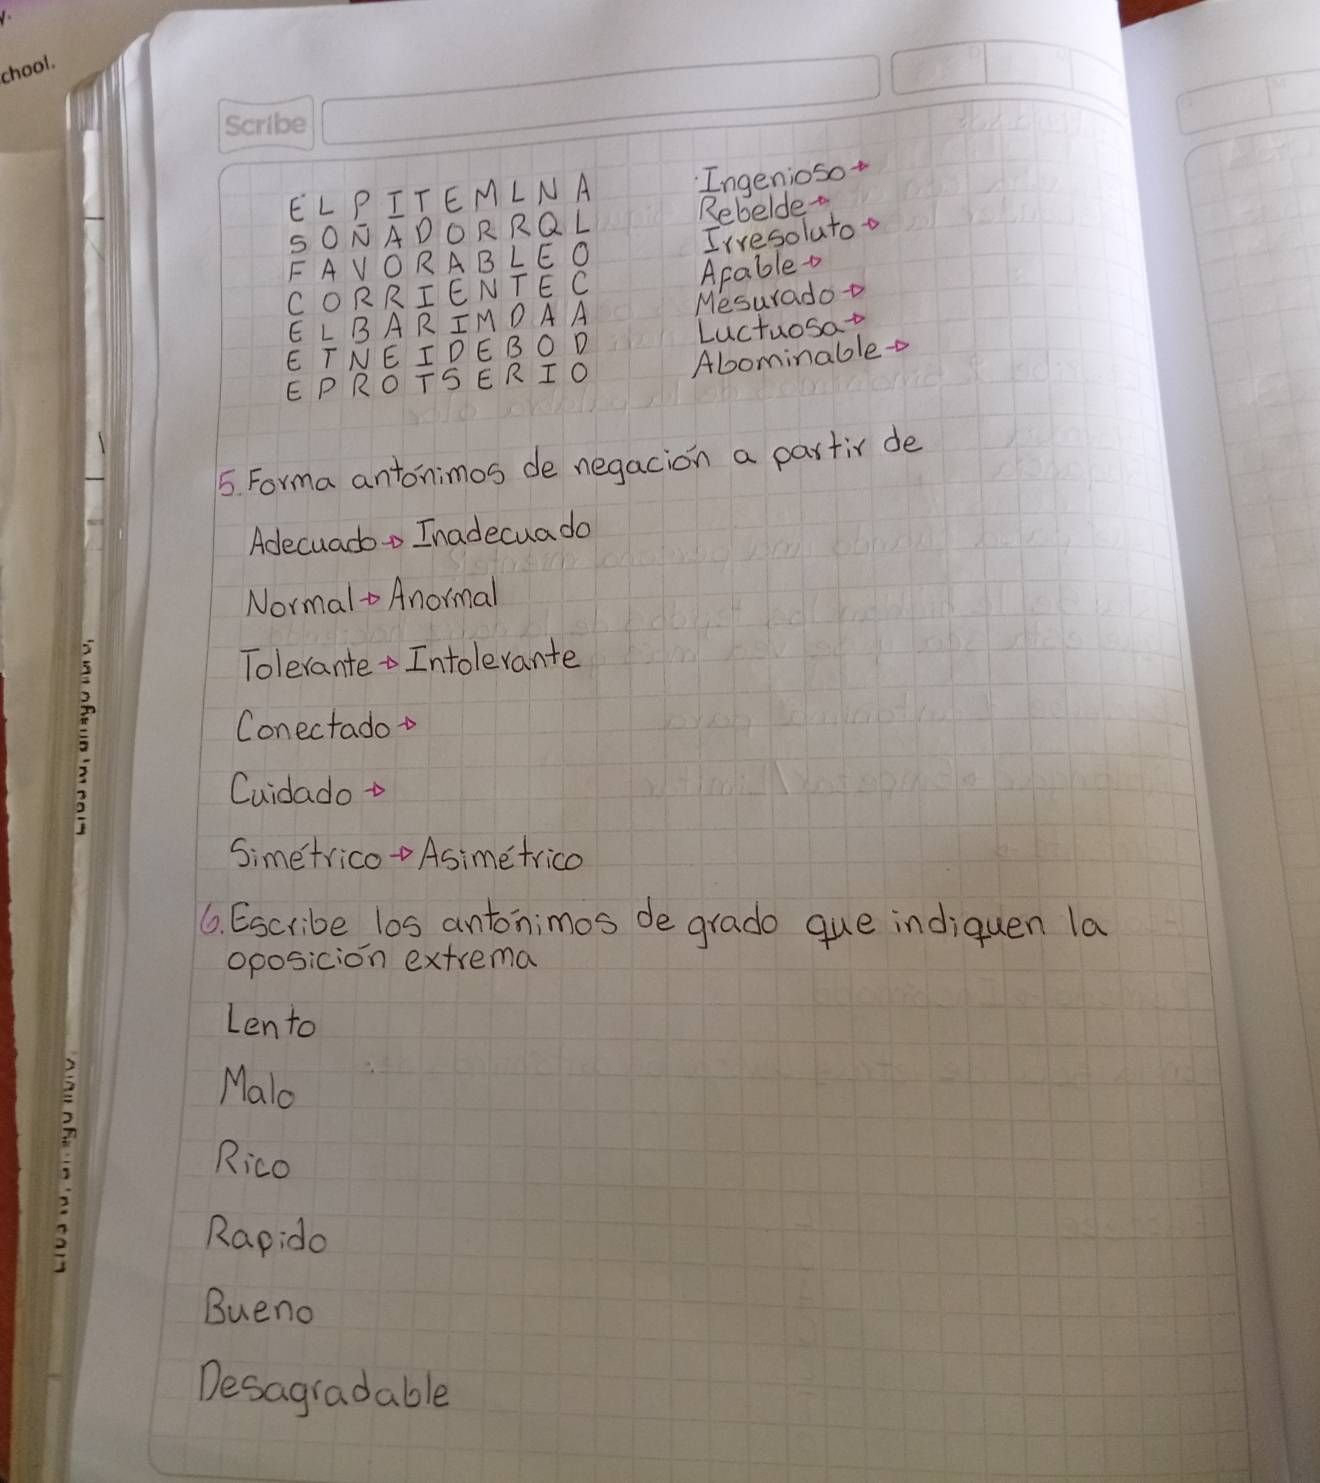 chool.
Scribe
E L P I T E M L N A
S O Ñ A D O R R Q L
F A V O R A B L E O
C O R R I E N T E C
E L B A R I M D A A
E T N E I D E B O D
E P R O T S E R I O
Ingenioso→
Rebelde→
Irresoluto→
Afable→
Mesurado→
Luctuosa→
Abominable→
5. Forma antónimos de negación a partir de
Adecuado→ Inadecuado
Normal→ Anormal
Tolerante→ Intolerante
Conectado→
Cuidado→
Simétrico→ Asimétrico
6. Escribe los antónimos de grado que indiquen la
oposición extrema
Lento
Malo
Rico
Rapido
Bueno
Desagradable